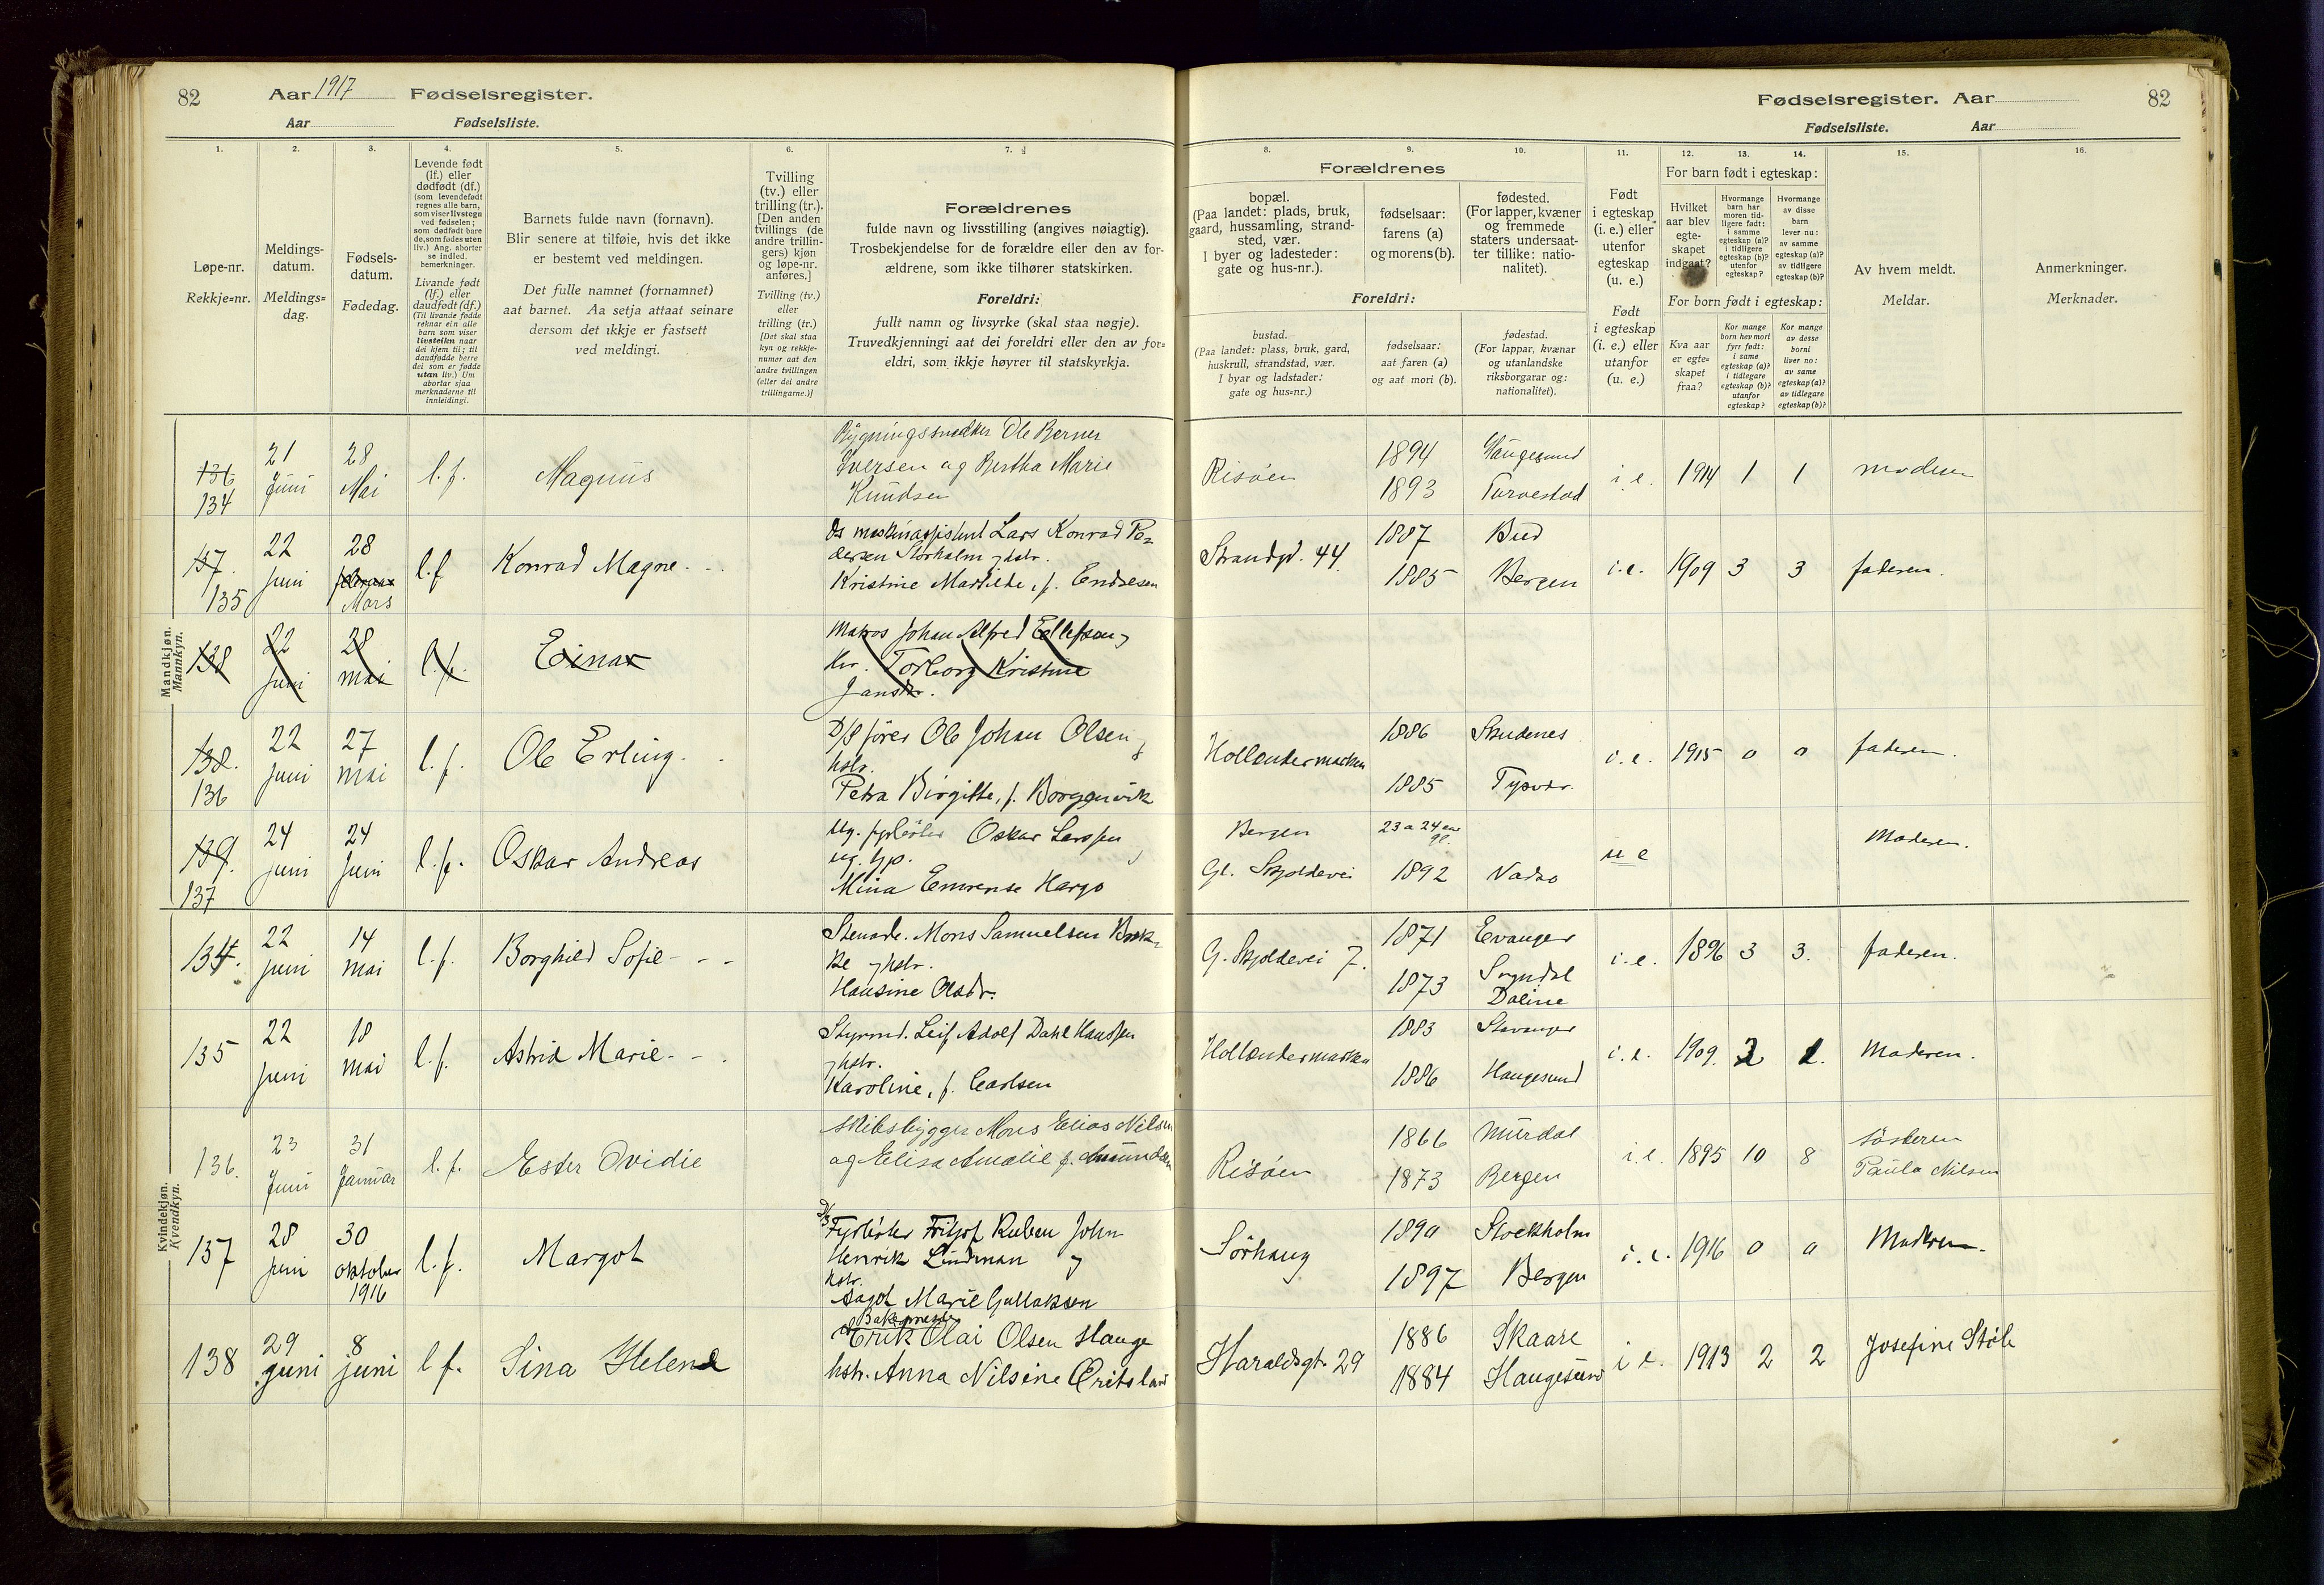 82 Aar 1917 Fødselsregister.
Aar Fødselsliste.
Fødselsregister. Aar 82
Fødselsliste. Aar
1. 2. 3. 4. 5. 6. 7.
Løpe-nr.
Rekkje=nr.
Meldings-
datum.
Meldings=
dag.
Fødsels-
datum.
Fødedag.
Levende født
(lf.) eller
dødfødt (df.)
(som levendefødt
regnes alle barn,
som viser livstegn
ved fødselen;
som dødfødt bare
de, som fødes uten
liv.) Ang. aborter
se indled.
bemerkninger.
Livande født
(lf.) eller
daudfødt (df.)
(Til livande fødde
reknar ein alle
barn som viser
livsteikn naar
dei kjem til; til
daudfødde berre
dei som er fødde
utan liv.) Um
abortar sjaa
merknaderne til
innleidingi.
Barnets fulde navn (fornavn).
Blir senere at tilføie, hvis det ikke
er bestemt ved meldingen.
Det fulle namnet (fornamnet)
aat barnet. Aa setja attaat seinare
dersom det ikkje er fastsett
ved meldingi.
Tvilling
(tv.) eller
trilling (tr.).
[Den anden
tvillings (de
andre trillin-
gers) kjøn
og løpe-nr.
anføres.]
Tvilling (tv.)
eller
trilling (tr.)
[Det skal staa
kyn og rekkje-
numer aat den
andre tvillingen
(eller dei andre
trillingarne.)]
Forældrenes
fulde navn og livsstilling (angives nøiagtig).
Trosbekjendelse for de forældre eller den av for-
ældrene, som ikke tilhører statskirken.
Foreldri:
fullt namn og livsyrke (skal staa nøgje).
Truvedkjenningi aat dei foreldri eller den av for=
eldri, som ikkje høyrer til statskyrkja.
8. 9. 10. 11. 12. 13. 14. 15. 16.
Forældrenes
bopæl.
(Paa landet: plads, bruk,
gaard, hussamling, strand-
sted, vær.
I byer og ladesteder:
gate og hus-nr.).
fødselsaar:
farens (a)
og morens (b).
fødested.
(For lapper, kvæner
og fremmede
staters undersaat-
ter tillike: natio-
nalitet).
Foreldri:
bustad.
(Paa landet: plass, bruk, gard,
huskrull, strandstad, vær.
I byar og ladstader:
gate og hus=nr.)
fødselsaar:
aat faren (a)
og aat mori (b).
fødestad.
(For lappar, kvænar
og utanlandske
riksborgarar og:
nationalitet).
Født
i egteskap
(i. e.) eller
utenfor
egteskap
(u. e.)
Født
i egteskap
(i. e.) eller
utanfor
(u. e.)
For barn født i egteskap:
Hvilket
aar blev
egte-
skapet
indgaat?
Hvormange
barn har
moren tid-
ligere født:
i samme
egteskap (a)?
i tidligere
egteskap (b)?
utenfor
egteskap?
Hvormange
av disse
barn
lever nu:
av samme
egteskap (a)?
av tidligere
egteskap (b)?
For born født i egteskap:
Kva aar
er egte=
skapet
fraa?
Kor mange
born hev mori
fyrr født:
i same
egteskap (a)?
i tidlegare
egteskap (b)?
utanfor
egteskap?
Kor mange
av desse
borni
liver no:
av same
egteskap (a)?
av tidlegare
egteskap (b)?
Av hvem meldt.
Meldar.
Anmerkninger.
Merknader.
Mandkjøn.
Mannkyn.
136 134 21 Juni 28 Mai l. f. Magnus
Bygningssnedker Ole Berner
Iversen og Bertha Marie
Knudsen
Risöen 1894 Haugesund
1893 Torvestad i. e. 1914 1 1 moderen
137. 135 22 juni 28 februar Mars l.f. Konrad Magne
Ds maskinassistent Lars Konrad Pe=
dersen Storholm og hstr.
Kristine Mathilde, f. Endresen
Strandgd. 44 1887 Bud
1885 Bergen i.e. 1909 3 3 faderen.
138 22 juni 28 mai l. f. Einar
Matros Johan Alfred Ellefsen og
hr. Torborg Kristine
Jansdr.
138. 136 22 juni 27 mai l. f. Ole Erling
D/S förer Ole Johan Olsen og
hstr.
Petra Birgitte, f. Borggenvik
Hollendermarken 1886 Skudenes
1885 Tysvær. i. e. 1915 0 0 faderen.
139. 137 24 juni 24 Juni l. f. Oskar Andreas
Ug. fyrböter Oskar Larssen og
ug. tjp.
Mina Emrense Hargo
Bergen 23 a 24 aar gl.
Gl. Skjoldevei 1892 Vadsö u e Moderen.
Kvindekjøn.
Kvendkyn.
134. 22 juni 14 mai l. f. Borghild Sofie
Stenarb. Mons Samuelsen Brek=
ke og hstr.
Hansine Olsdr.
G. Skjoldevei 7. 1871 Evanger
1873 Sogndal
Dalene i. e. 1896 3 3. faderen.
135 22 juni 18 mai l. f. Astrid Marie
Styrmd. Leif Adolf Dahl Hanssen
og hstr.
Karoline, f. Carlsen
Hollendermarken 1883 Stavanger
1886 Haugesund i. e. 1909. 2. Moderen.
136. 23 Juni 31 Januar l. f. Ester Ovidie
Skibsbygger Mons Elias Nilsen
og Elisa Amalie f. Amundsen
Risöen 1866 Murdal
1873 Bergen i. e. 1895 10 8 Sösteren
Paula Nilsen
137 28 juni 30 oktober 1916 l. f. Margot
D/S Fyrböter Fritjof Ruben John
Henrik Lindman og
hstr.
Aagot Marie Gullaksen
Sörhaug 1890 Stockholm
1897 Bergen i. e. 1916 0 0 Moderen.
138 29 juni 8 juni l f. Sina Helene
Bakermester
Erik Olai Olsen Hauge
hstr. Anna Nilsine Qritsland
Haraldsgt. 29 1886 Skaare
1884 Haugesund i e. 1913 2 2 Josefine Stöle